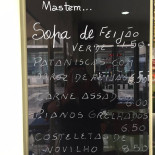 Mastem...
Sopa de Feijão
VERDE 1.50
PATANISCAS COM
ARROZ DE FEIJÃO
CARNE ASSADA
PIANOS GRELHADOS
6.50
COSTELETAS DE
NOVILHO 8.50